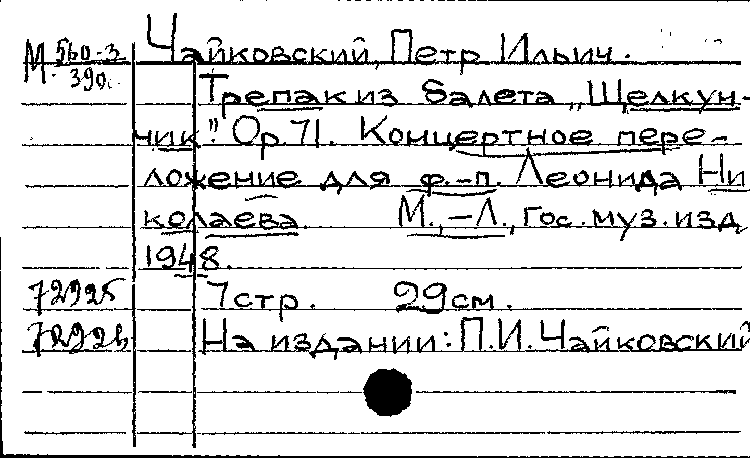 М 560-3/390 Чайковский, Петр Ильич.
Трепак из балета „Щелкун-
чик". Ор.71. Концертное пере-
ложение для ф.-п. Леонида Ни
колаева. М.,-Л., Гос.муз.изд
1948.
72925 7стр. 29см.
На издании: П.И.Чайковский